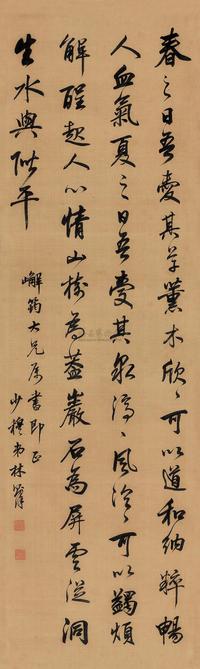 春之日吾愛其草薰木欣〻可以道和納粹暢
人血氣夏之日吾愛其泉渟〻風泠〻可以蠲煩
解酲起人心情山樹為蓋巖石為屏雲從洞
生水與階平
嶰筠大兄屬書即正
少穆弟林則徐